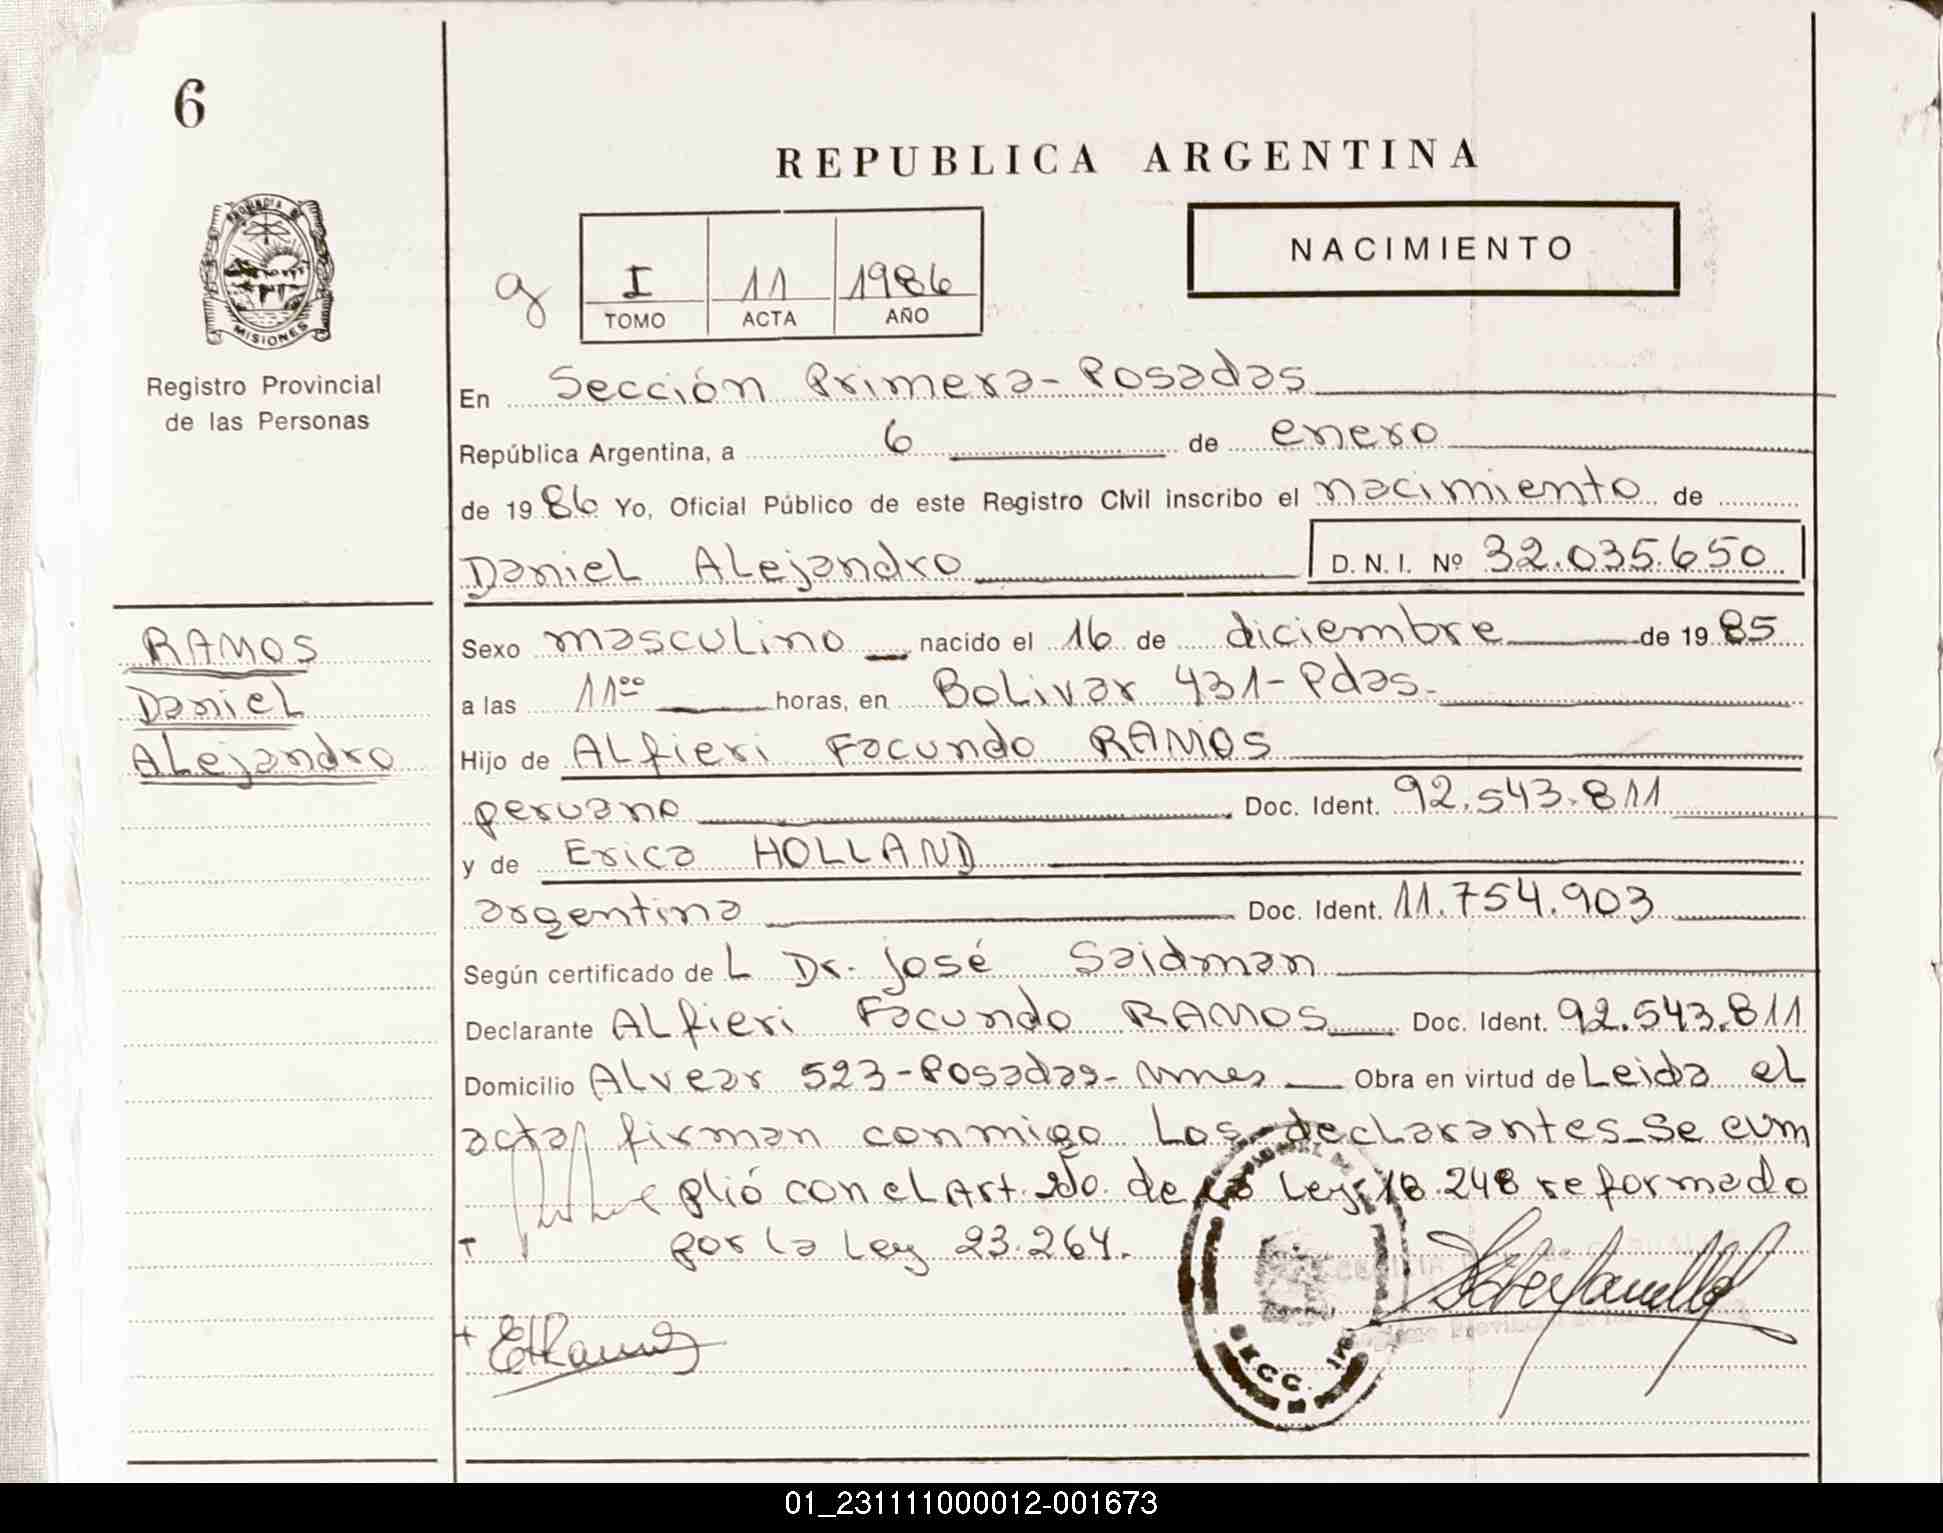 6
REPUBLICA ARGENTINA
PROVINCIA DE
MISIONES
Registro Provincial
de las Personas
NACIMIENTO
g
I 11 1986
TOMO ACTA AÑO
En Sección Primera - Posadas
República Argentina, a 6 de enero
de 1986 Yo, Oficial Público de este Registro Civil inscribo el nacimiento de
Daniel Alejandro D. N. I. Nº 32.035.650
RAMOS
Daniel
Alejandro
Sexo masculino nacido el 16 de diciembre de 1985
a las 11 ºº horas, en Bolivar 431 - Pdas.
Hijo de Alfieri Facundo RAMOS
peruano Doc. Ident. 92.543.811
y de Erica HOLLAND
argentina Doc. Ident. 11.754.903
Según certificado de L Dr. José Saidman
Declarante Alfieri Facundo RAMOS Doc. Ident. 92.543.811
Domicilio Alvear 523 - Posadas - Mnes Obra en virtud de Leida el
acta, firman conmigo los declarantes - Se cum
plió con el Art. 2do. de la Ley 18.248 reformado
por la Ley 23.264.
SECC. 1ra
01_231111000012-001673